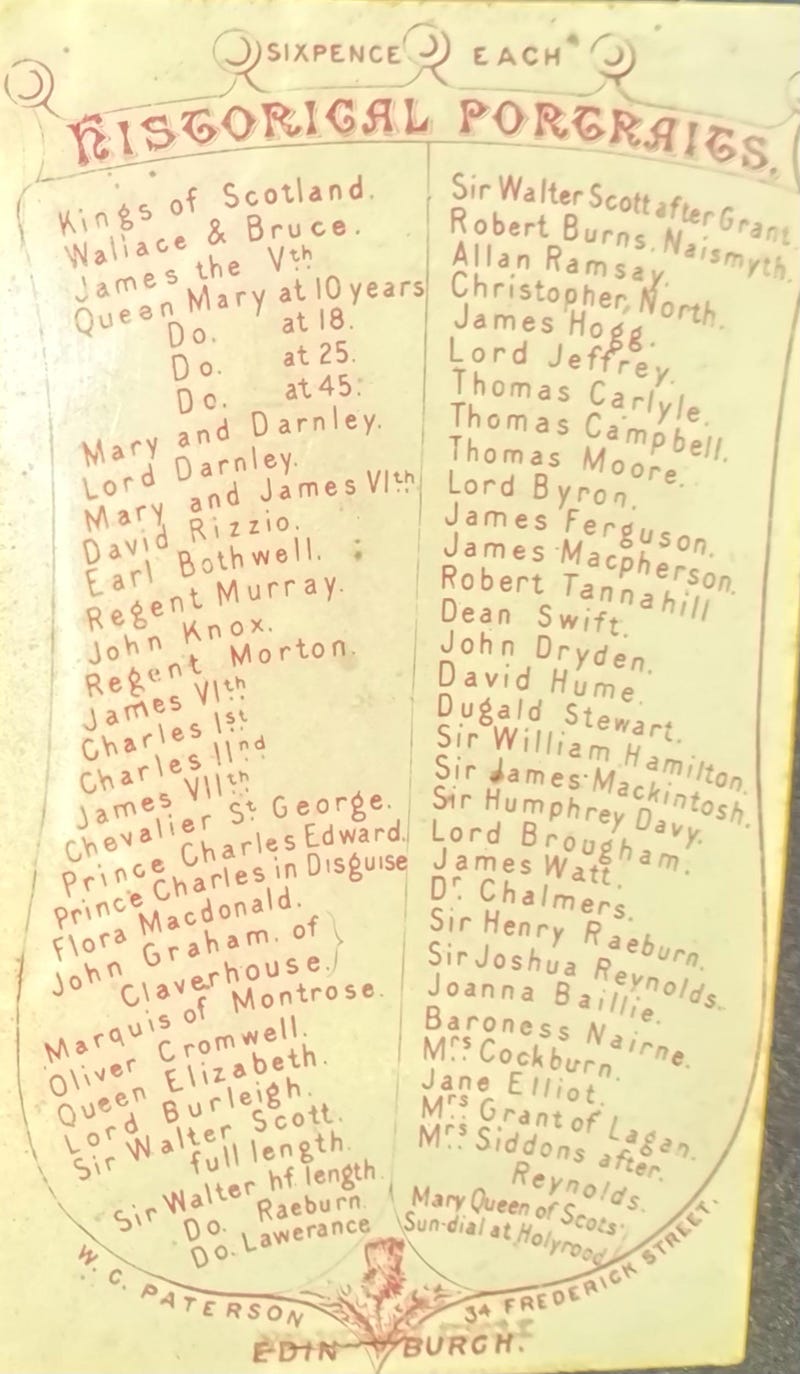 SIXPENCE EACH
HISTORICAL PORTRAITS.
Kings of Scotland.
Wallace & Bruce.
James the Vth
Queen Mary at 10 years
Do. at 18.
Do. at 25.
Do. at 45.
Mary and Darnley.
Lord Darnley.
Mary and James VIth
David Rizzio.
Earl Bothwell.
Regent Murray.
John Knox.
Regent Morton.
James VIth
Charles Ist
Charles IInd
James VIIth
Chevalier St George.
Prince Charles Edward.
Prince Charles in Disguise
Flora Macdonald.
John Graham. of
Claverhouse.
Marquis of Montrose.
Oliver Cromwell.
Queen Elizabeth.
Lord Burleigh.
Sir Walter Scott.
full length.
Sir Walter hf. length.
Do. Raeburn
Do. Lawerance
Sir Walter Scott after Grant.
Robert Burns. Naismyth.
Allan Ramsay.
Christopher, North.
James Hogg.
Lord Jeffrey.
Thomas Carlyle.
Thomas Campbell.
Thomas Moore.
Lord Byron.
James Ferguson.
James Macpherson.
Robert Tannahill
Dean Swift.
John Dryden.
David Hume.
Dugald Stewart.
Sir William Hamilton.
Sir James Mackintosh.
Sir Humphrey Davy.
Lord Brougham.
James Watt.
Dr. Chalmers.
Sir Henry Raeburn.
Sir Joshua Reynolds.
Joanna Baillie.
Baroness Nairne.
Mrs. Cockburn.
Jane Elliot.
Mrs. Grant of Lagan.
Mrs. Siddons after.
Reynolds.
Mary Queen of Scots'
Sun-dial at Holyrood
W. C. PATERSON 34 FREDERICK STREET.
EDINBURGH.